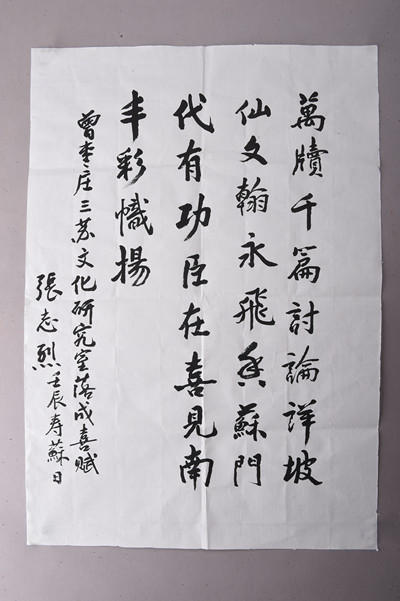 萬牘千篇討論詳坡
仙文翰永飛香蘇門
代有功臣在喜見南
丰彩幟揚
曾枣庄三苏文化研究室落成喜赋
張志烈壬辰寿蘇日